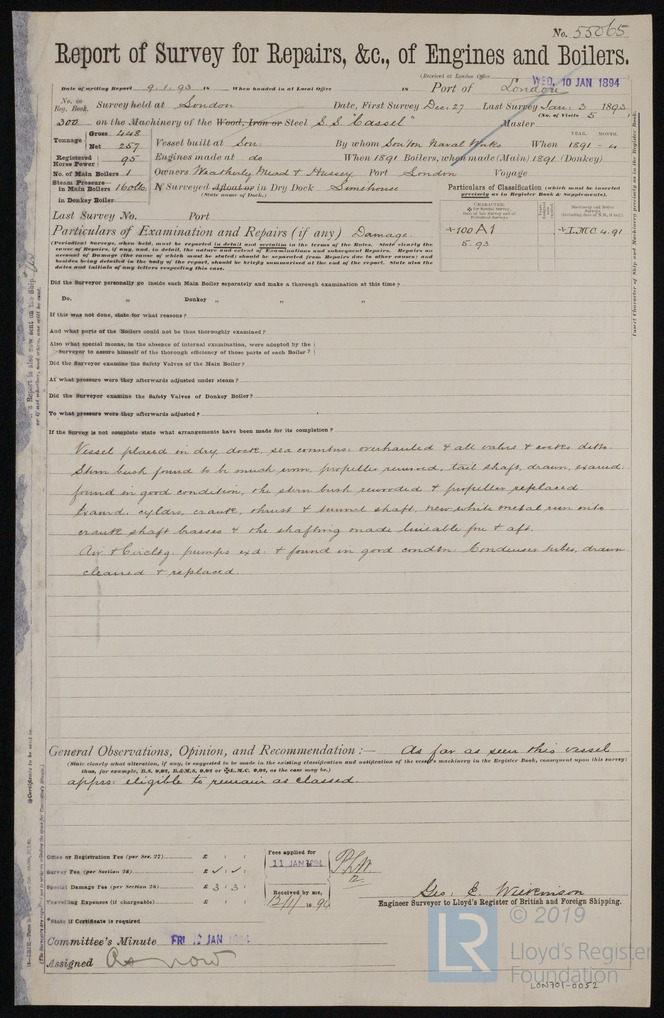 No. 55065
Report of Survey for Repairs, &c., of Engines and Boilers.
(Received at London Office WED. 10 JAN 1894
Date of writing Report 9.1.93 18 When handed in at Local Office 18 Port of London
No. in Reg. Book. Survey held at London Date, First Survey Dec: 27 Last Survey Jan: 3 1893
(No. of Visits 5
300 on the Machinery of the Wood, Iron or Steel S.S. "Cassel" Master
Tonnage Gross 448 Net 257
Vessel built at Son: By whom Son'ton Naval Works When 1891 - 4
YEAR. MONTH.
Registered Horse Power 95
Engines made at do When 1891 Boilers, when made (Main) 1891 (Donkey)
No. of Main Boilers 1
Owners Weatherley Mead & Hussey Port London Voyage
Steam Pressure in Main Boilers 160 lbs
in Donkey Boiler
If Surveyed Afloat or in Dry Dock Limehouse
(State name of Dock.)
Particulars of Classification (which must be inserted precisely as in Register Book & Supplements).
CHARACTER.
+100A1
5.93
+L.M.C. 4.91
Last Survey No. Port
Particulars of Examination and Repairs (if any) Damage.
(Periodical Surveys, when held, must be reported in detail and seriatim in the terms of the Rules. State clearly the
cause of Repairs, if any, and, in detail, the nature and extent of Examinations and subsequent Repairs. Repairs on
account of Damage (the cause of which must be stated) should be separated from Repairs due to other causes; and
besides being detailed in the body of the report, should be briefly summarised at the end of the report. State also the
dates and initials of any letters respecting this case.
Did the Surveyor personally go inside each Main Boiler separately and make a thorough examination at this time?
Do. „ Donkey „ „ „
If this was not done, state for what reasons?
And what parts of the Boilers could not be thus thoroughly examined?
Also what special means, in the absence of internal examination, were adopted by the
Surveyor to assure himself of the thorough efficiency of those parts of each Boiler?
Did the Surveyor examine the Safety Valves of the Main Boiler?
At what pressure were they afterwards adjusted under steam?
Did the Surveyor examine the Safety Valves of Donkey Boiler?
To what pressure were they afterwards adjusted?
If the Survey is not complete state what arrangements have been made for its completion?
Vessel placed in dry dock, sea conntns: overhauled & all valves & cocks ditto.
Stern bush found to be much worn, propeller removed, tail shaft, drawn, examd.
found in good condition, the stern bush rewooded & propeller replaced
Examd. cyldrs, crank, thrust & tunnel shaft, new white metal run into
crank shaft brasses & the shafting made suitable for & aft.
Air & Circltg: pumps exd: & found in good condtn: Condenser tubes, drawn
cleaned & replaced
General Observations, Opinion, and Recommendation:— As far as seen this vessel
(State clearly what alteration, if any, is suggested to be made in the existing classification and notification of the vessel's machinery in the Register Book, consequent upon this survey;
thus, for example, B.S. 9,91, B.&M.S. 9,91 or +L.M.C. 9,91, as the case may be.)
apprs: eligible to remain as classed.
Office or Registration Fee (per Sec. 27) £ : :
Survey Fee (per Section 28) £
Special Damage Fee (per Section 28) £ 3 : 3 :
Travelling Expenses (if chargeable) £ : :
Fees applied for
11 JAN 1894
Received by me,
12/1/1894
Geo: E. Wilkinson
Engineer Surveyor to Lloyd's Register of British and Foreign Shipping.
*State if Certificate is required
Committee's Minute FRI 12 JAN 1894
Assigned As now
LR
© 2019
Lloyd's Register
Foundation
LON701-0052